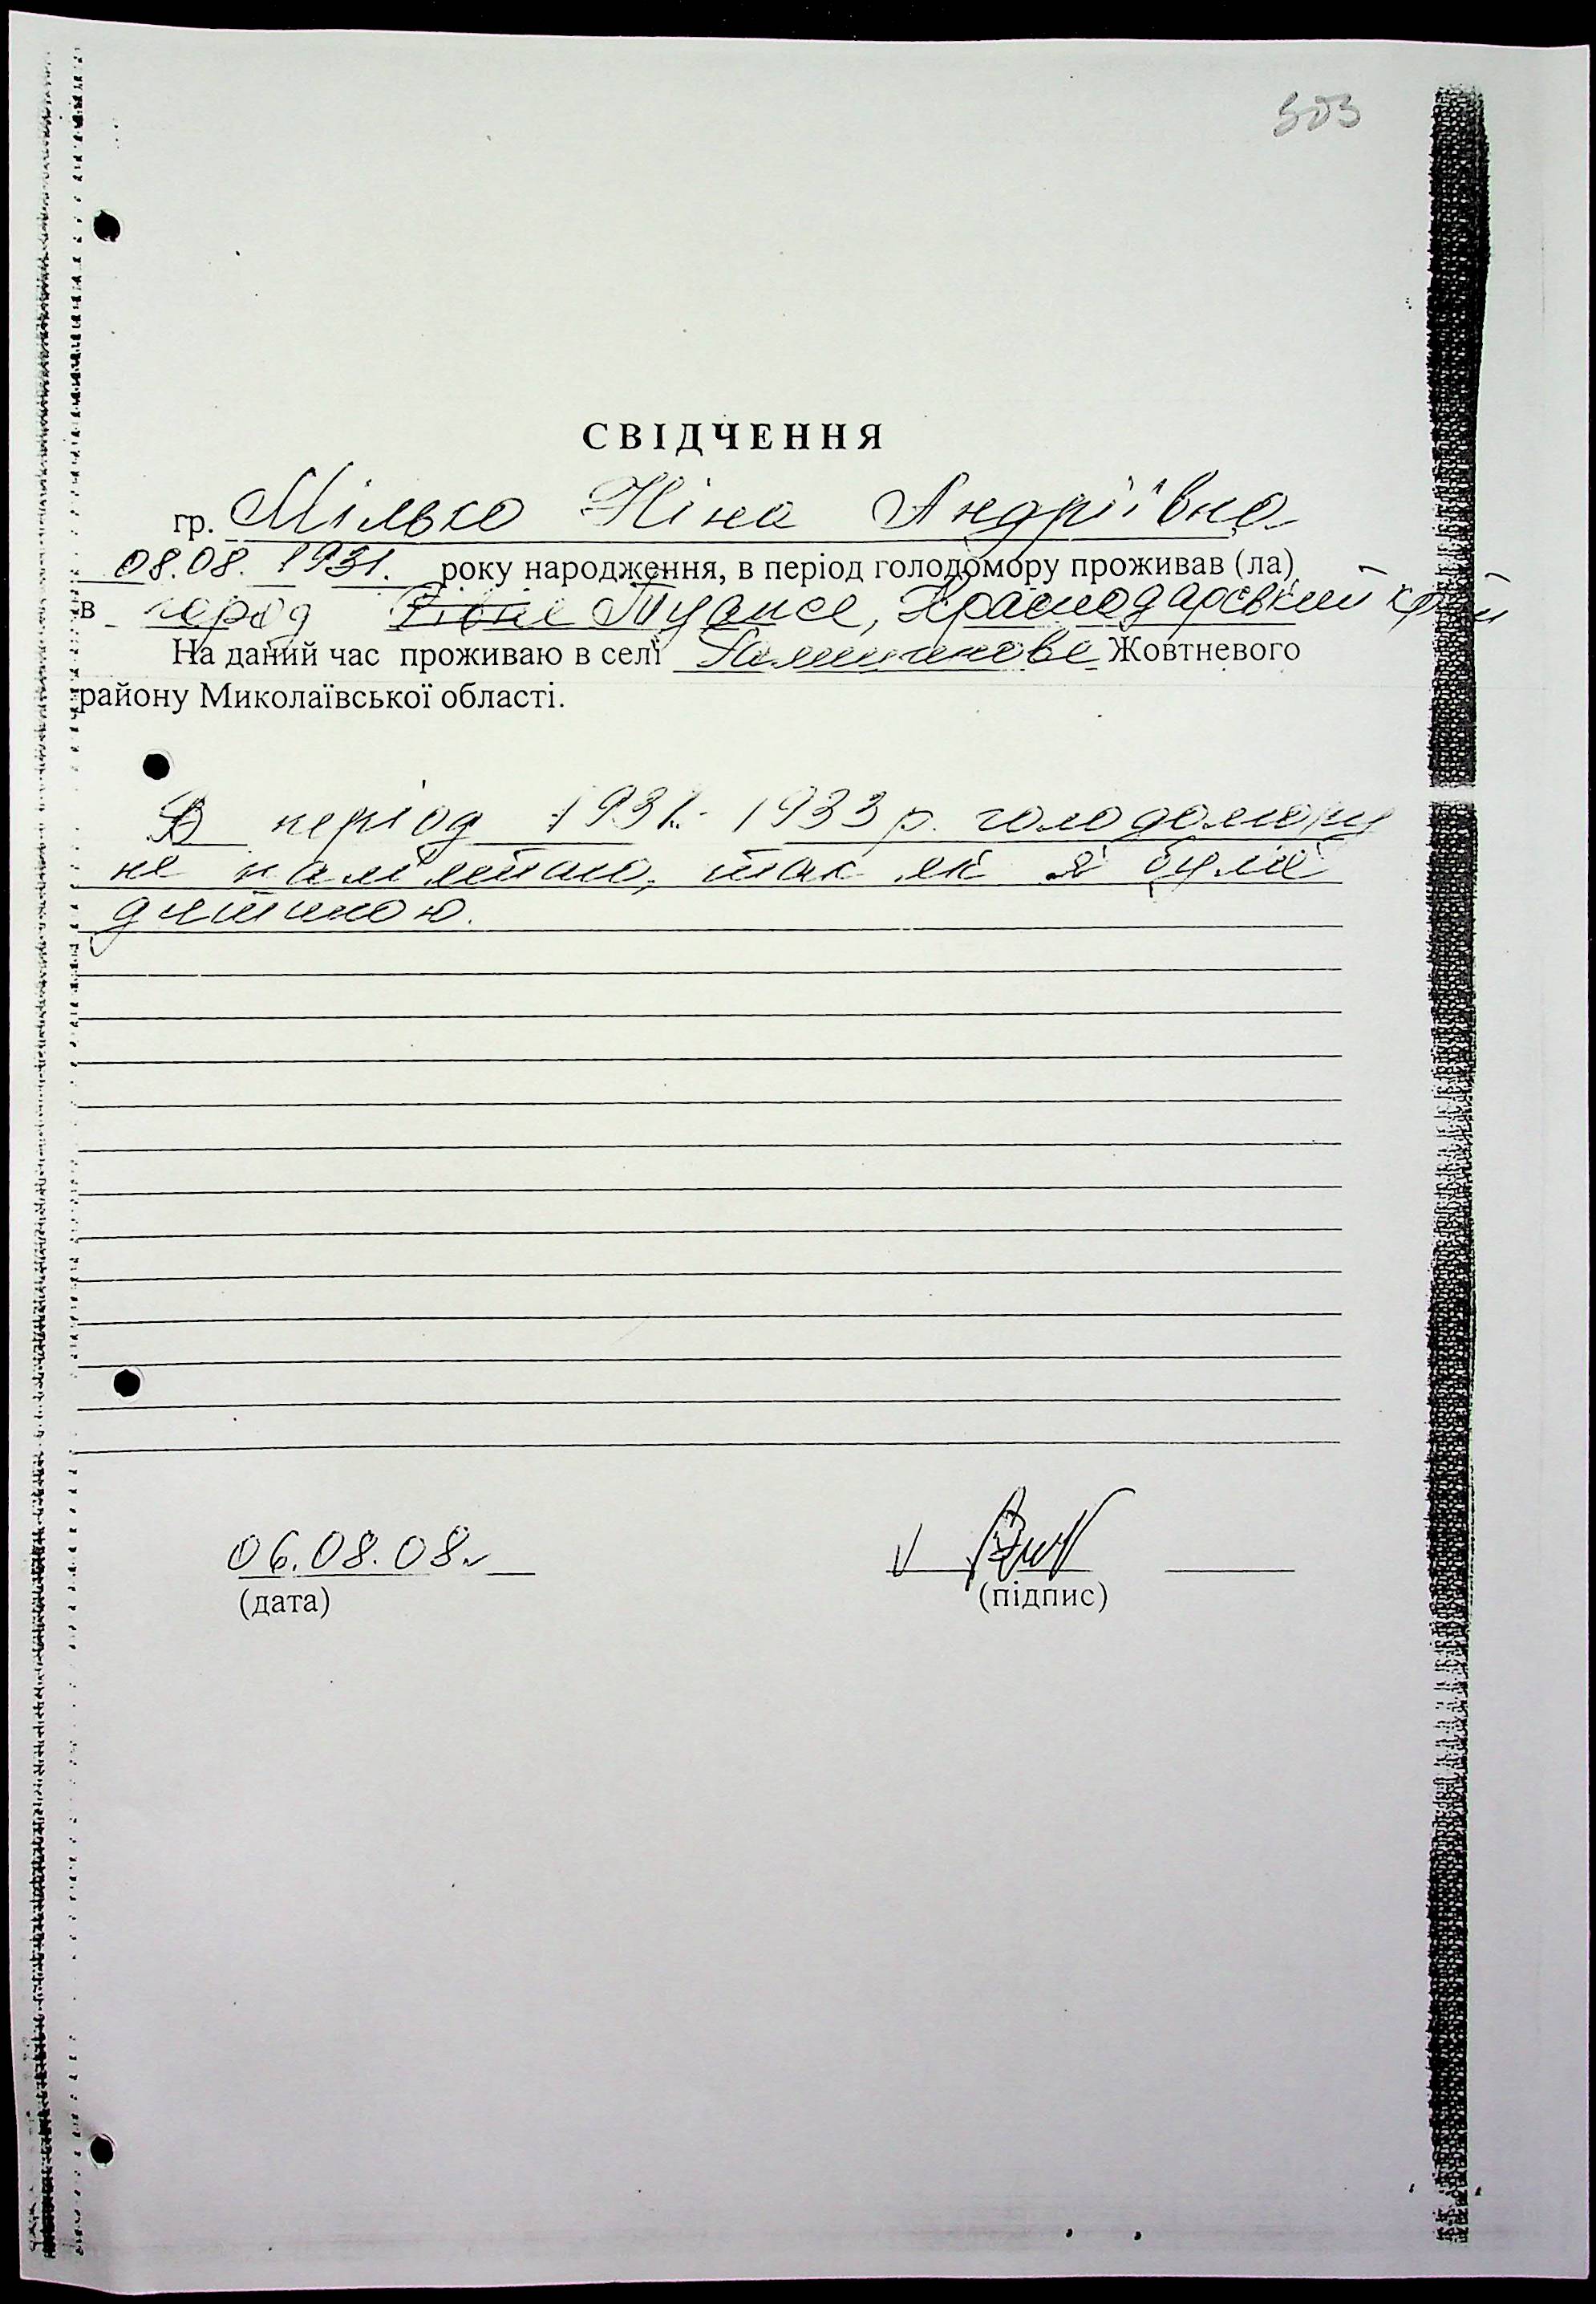 503
СВІДЧЕННЯ
гр. Мілько Ніна Андріївна
08.08. 1931. року народження, в період голодомору проживав (ла)
в город Туапсе, Краснодарський край
На даний час проживаю в селі Жовтневого
району Миколаївської області.
В період 1932-1933 р. голодомору
не памʼятаю, так як я була
дитиною.
06.08.08
(дата)
(підпис)